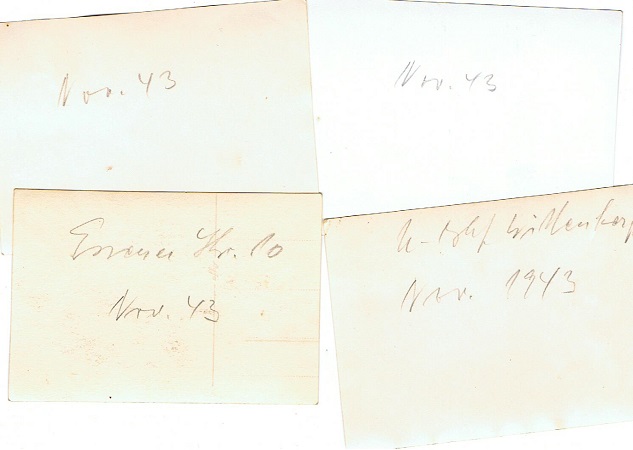 Nov. 43
Nov. 43
Essener Str. 10
Nov. 43
Wittenberg
Nov. 1943